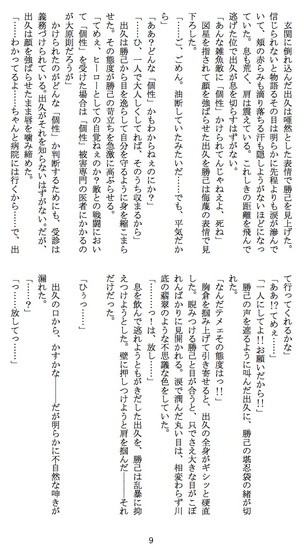 玄関に倒れ込んだ出久は唖然とした表情で勝己を見上げた。
信じられないと物語るその目は明らかに先程よりも涙が滲んで
いて、頬の赤らみも滴り落ちる汗も隠しようがないほどになっ
ていた。息も荒く、肩は震えている。これしきの距離を飛んで
逃げた位で出久が息を切らすはずがない。
「あんな雑魚敵に『個性』かけられてんじゃねえよ、死ね」
図星を指されて顔を強ばらせた出久を勝己は侮蔑の表情で見
下ろした。
「……ご、ごめん。油断していたみたいだ……でも、平気だか
ら」
「ああ?どんな『個性』かもわからねぇのにか?」
「……ひ、一人で大人しくしてれば、そのうち収まるから」
出久は勝己から目を逸らして自分を守るように身を縮こまら
せた。その態度が勝己の苛立ちを急激に高ぶらせる。
「てめぇ、ヒーローとしての自覚ねぇのか?敵との戦闘におい
て『個性』を受けた場合は『個性』被害専門の医者にかかるの
が大原則だろうが」
かけられたのがどんな『個性』か判断するためにも、受診は
義務づけられている。出久がそれを知らないはずがない。だが、
出久は顔を強ばらせたまま唇を噛み締めた。
「……わかってるよ……ちゃんと病院には行くから……で、出
て行ってくれるかな」
「ああ!?てめぇ……」
「一人にして!!お願いだから!!」
勝己の声を遮るように叫んだ出久に、勝己の堪忍袋の緒が切
れた。
「なんだテメェその態度はっ!!」
胸倉を掴み上げて引き寄せると、出久の全身がギシッと硬直
した。睨みつける勝己と目が合うと、只でさえ大きな目がこぼ
れんばかりに見開かれる。涙で潤んだ丸い目は、相変わらず川
底の翡翠のような不思議な色をしていた。
「………っ!は、放し……」
息を飲んで逃れようともがきだした出久を、勝己は乱暴に抑
えつけようとした。壁に押しつけようと肩を掴んだ――それ
だけだった。
「ひぅっ……」
出久の口から、かすかな――だが明らかに不自然な呻きが
漏れた。
「……?」
「っ……放して……っ」
9